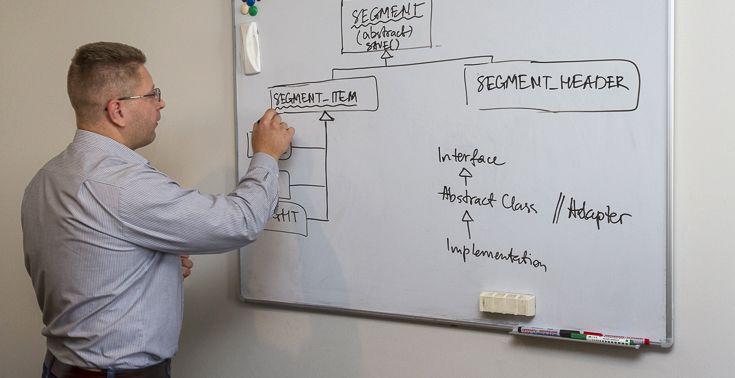 SEGMENT
(abstract)
SAVE()
SEGMENT_ITEM
SEGMENT_HEADER
Interface
Abstract Class // Adapter
Implementation